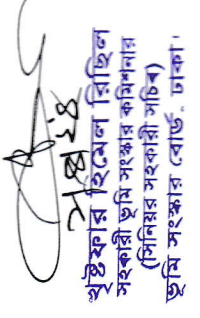 খৃষ্টফার হিমেল রিছিল
সহকারী ভূমি সংস্কার কমিশনার
(সিনিয়র সহকারী সচিব)
ভূমি সংস্কার বোর্ড, ঢাকা।